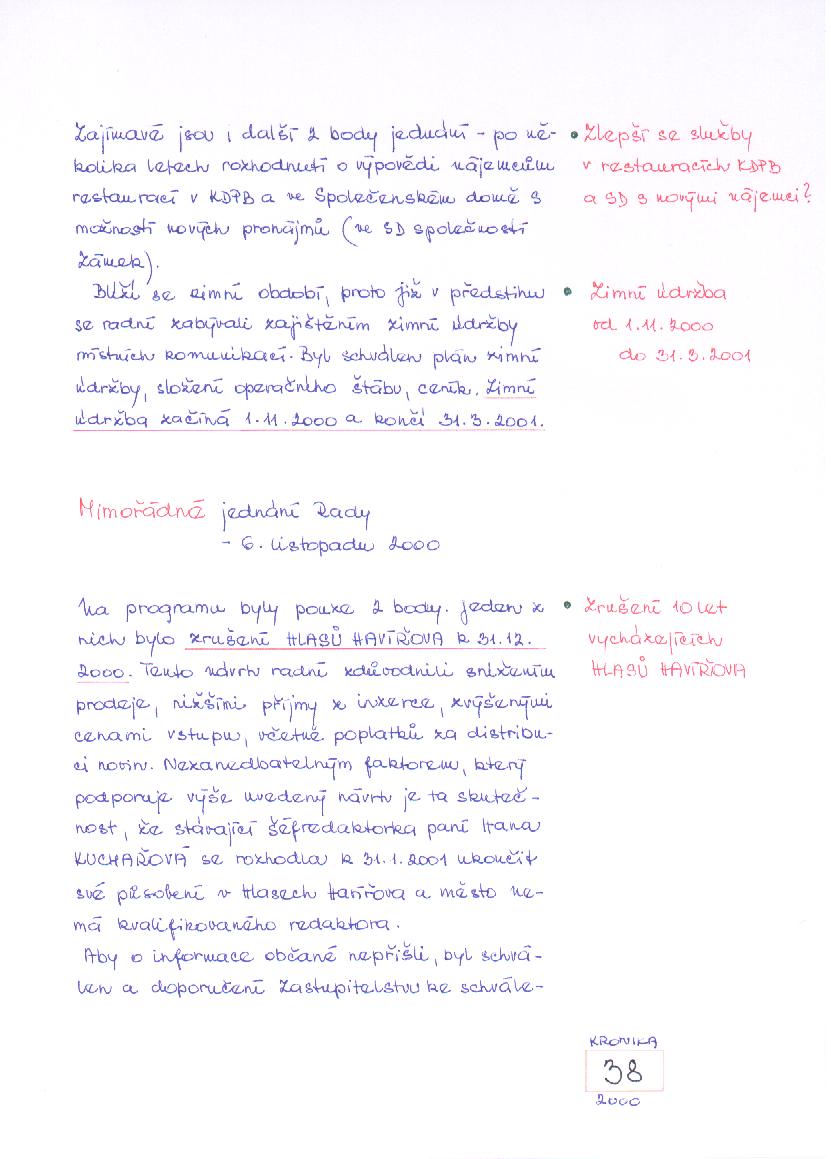 Zajímavé jsou i další 2 body jednání - po ně-
kolika letech rozhodnutí o výpovědi nájemcům
restaurací v KDPB a ve Společenském domě s
možností nových pronájmů (ve SD společností
Zámek).
Blíží se zimní období, proto již v předstihu
se radní zabývali zajištěním zimní údržby
místních komunikací. Byl schválen plán zimní
údržby, složení operačního štábu, ceník. Zimní
údržba začíná 1.11.2000 a končí 31.3.2001.
• Zlepší se služby
v restauracích KDPB
a SD s novými nájemci?
• Zimní údržba
od 1.11.2000
do 31.3.2001
Mimořádné jednání Rady
- 6. listopadu 2000
Na programu byly pouze 2 body. Jeden z
nich bylo zrušení HLASŮ HAVÍŘOVA k 31.12.
2000. Tento návrh radní zdůvodnili snížením
prodeje, nižšími příjmy z inzerce, zvýšenými
cenami vstupu, včetně poplatků za distribu-
ci novin. Nezanedbatelným faktorem, který
podporuje výše uvedený návrh je ta skuteč-
nost, že stávající šéfredaktorka paní Hana
KUCHAŘOVÁ se rozhodla k 31.1.2001 ukončit
své působení v Hlasech Havířova a město ne-
má kvalifikovaného redaktora.
Aby o informace občané nepřišli, byl schvá-
len a doporučení Zastupitelstvu ke schvále-
• Zrušení 10 let
vycházejících
HLASŮ HAVÍŘOVA
KRONIKA
38
2000